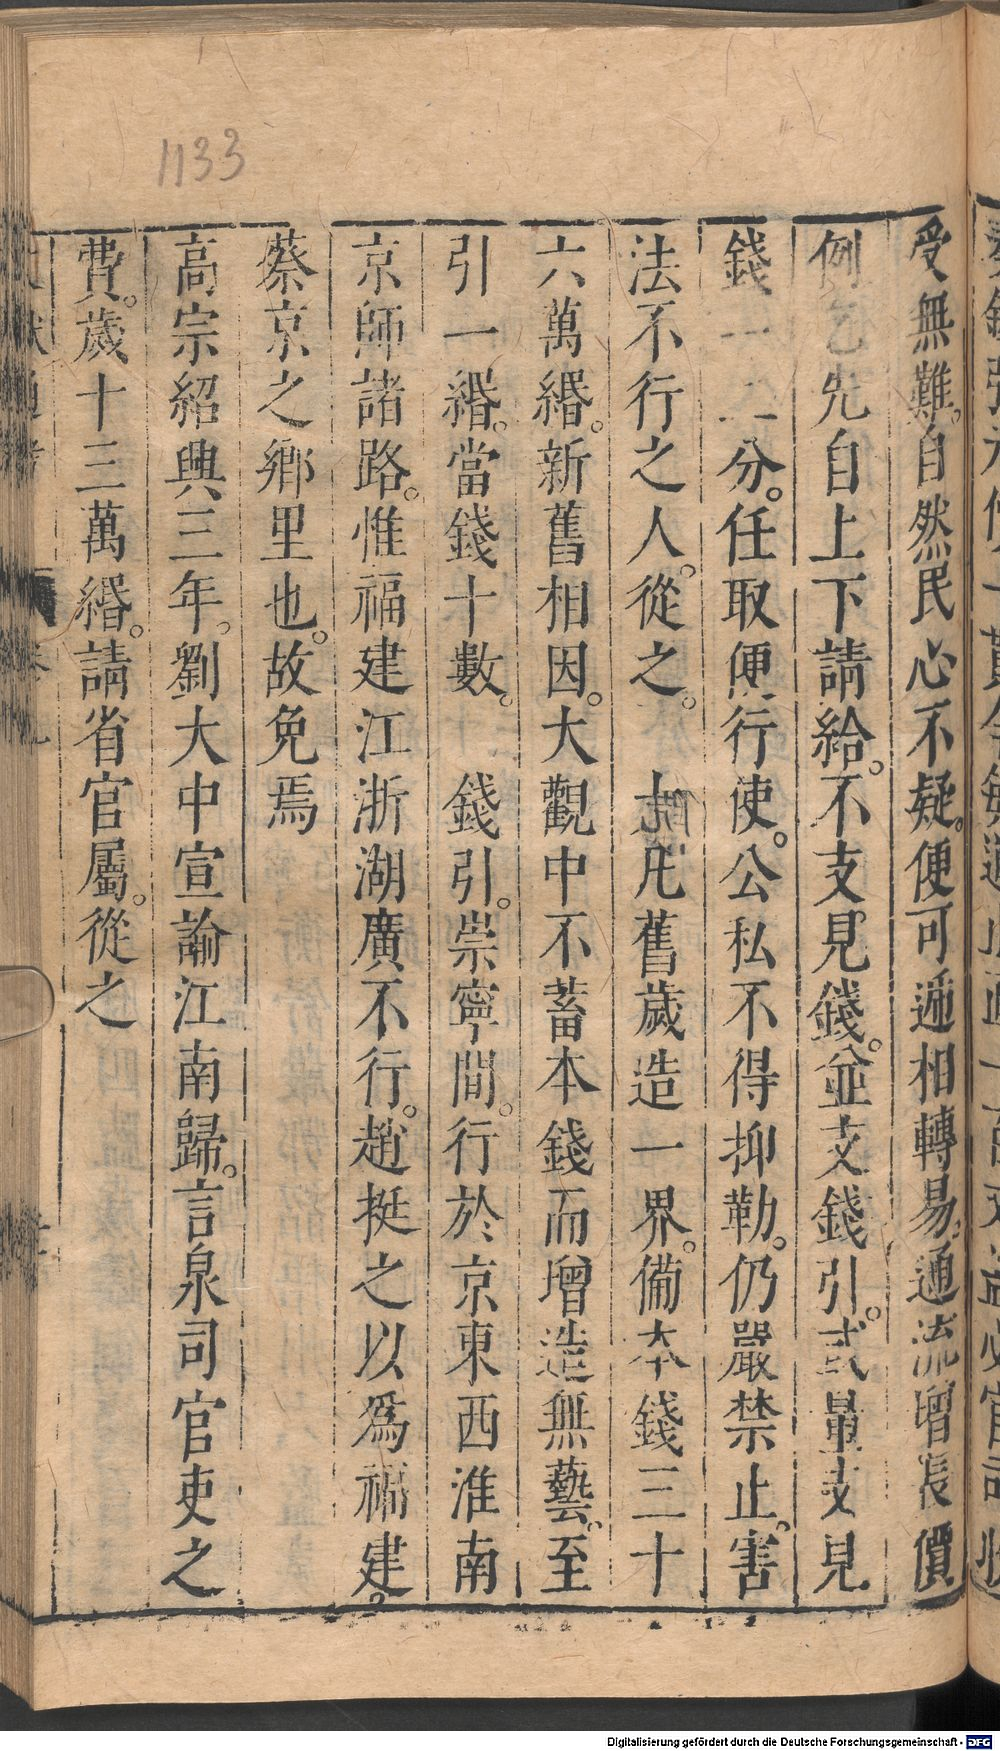 1133
受無難。自然民心不疑。便可逓相轉易。通流增長價
例乞先自上下請給。不支見錢。並支錢引。或量支見
錢一二分。任取便行使。公私不得抑勒。仍嚴禁止。害
法不行之人。從之。 凡舊歲造一界。備本錢三十
六萬緡。新舊相因。大觀中不蓄本錢而增造無藝。至
引一緡。當錢十數。 錢引。崇寧間。行於京東西淮南
京師諸路。惟福建江浙湖廣不行。趙挺之以爲福建。
蔡京之鄉里也。故免焉
高宗紹興三年。劉大中宣諭江南歸。言泉司官吏之
費。歲十三萬緡。請省官屬。從之
Digitalisierung gefördert durch die Deutsche Forschungsgemeinschaft - DFG